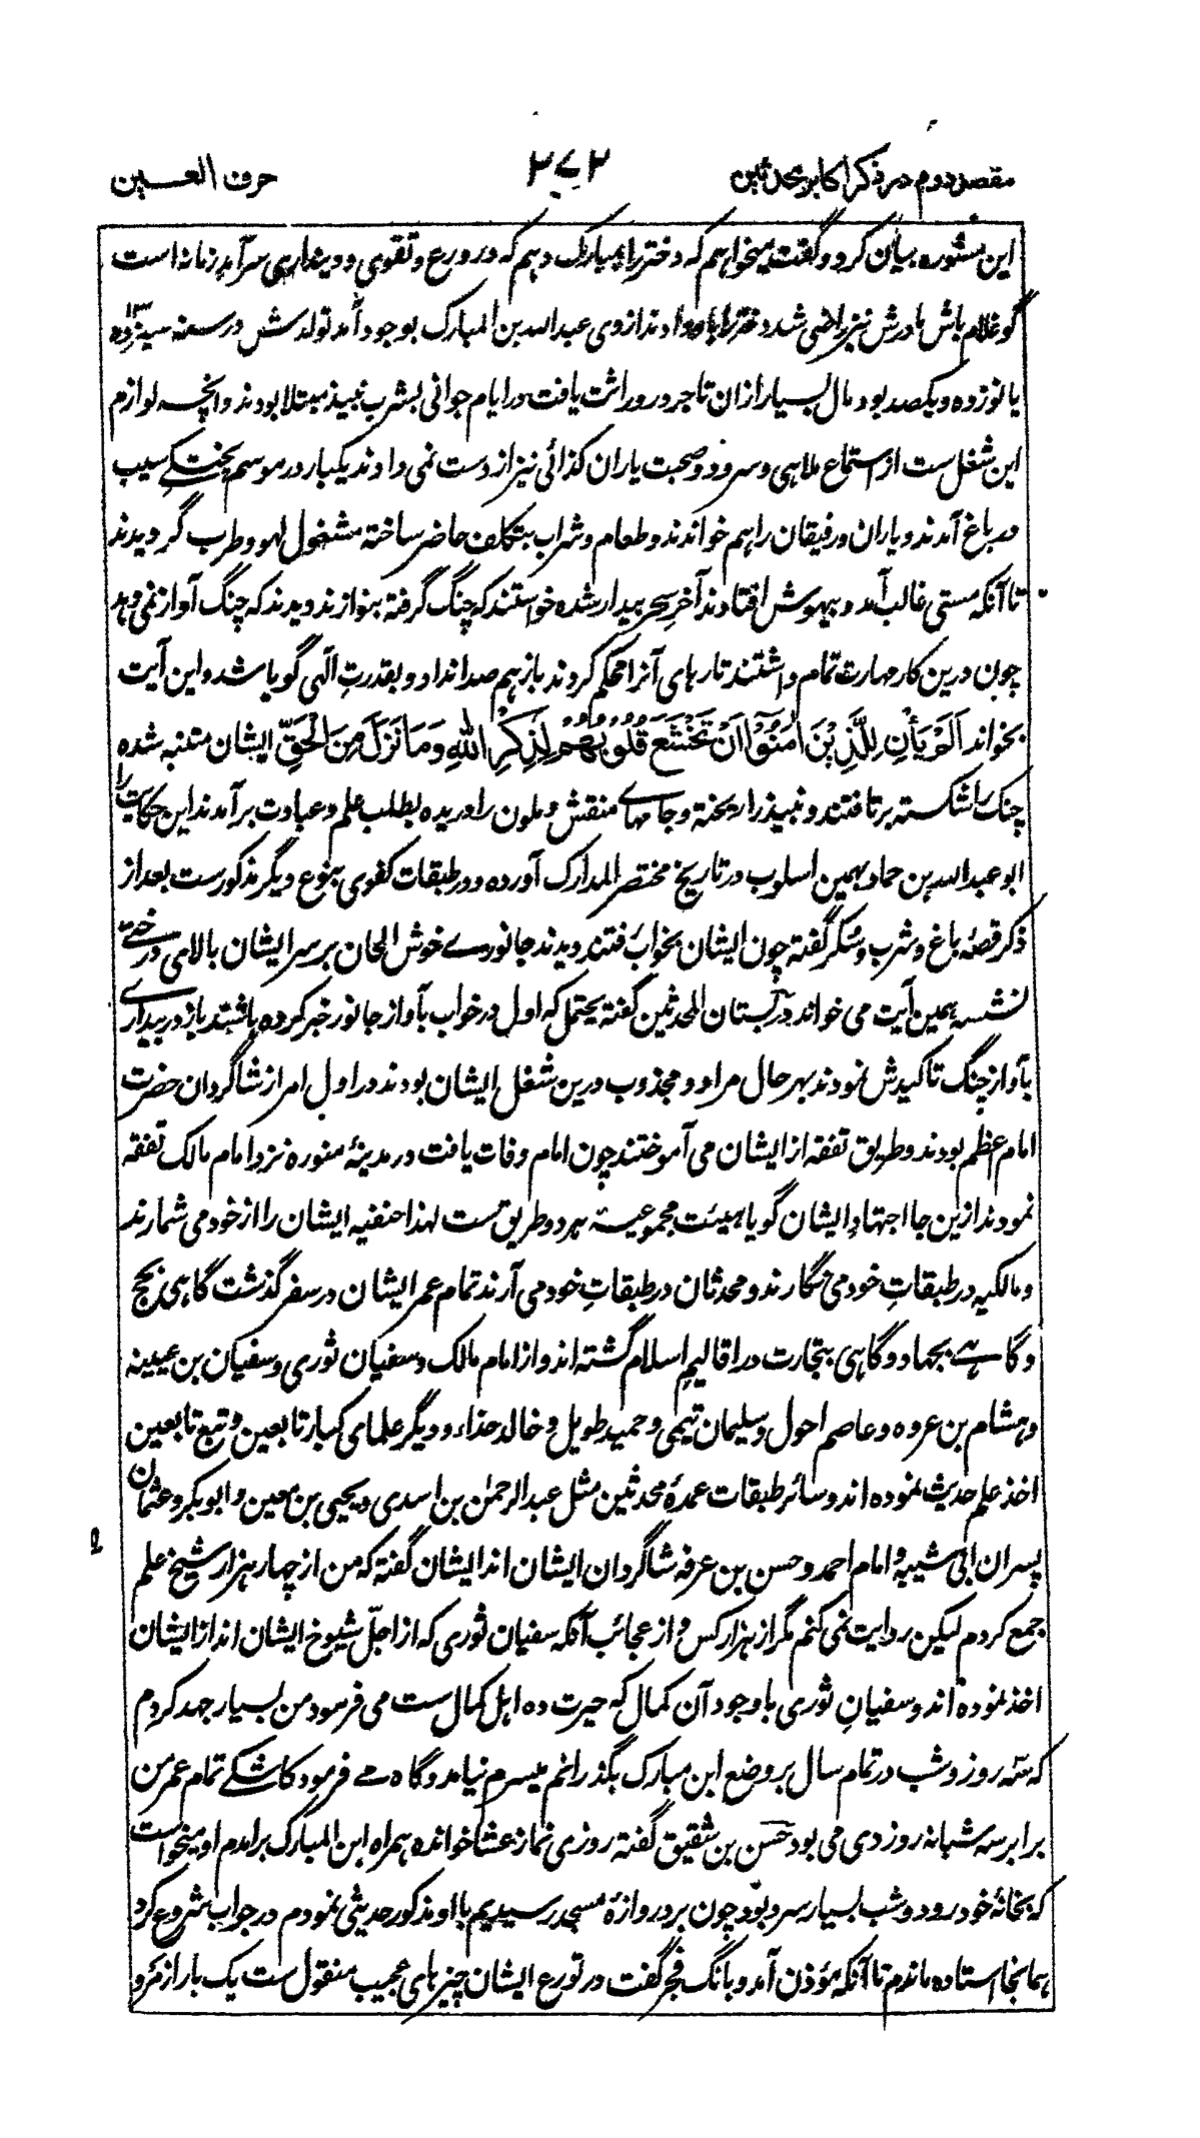 مقصد دوم در ذکر اکابر محدثین ۲۷۲ حرف العین
این مشوره بیان کرد و گفت میخواهم که دختر را بمبارک دهم که در ورع و تقوی و دینداری سرآمد زمانه است
گو غلام باش مادرش نیز راضی شد دختر را باو دادند از وی عبدالله بن المبارک بوجود آمد تولدش در سنه سیزده
یا نوزده و یکصد بود مال بسیار ازان تاجر در وراثت یافت در ایام جوانی بشرب نبیذ مبتلا بودند و آنچه لوازم
این شغل ست از استماع ملاهی و سرود و صحبت یاران کذائی نیز از دست نمی دادند یکبار در موسم پختگی سیب
در باغ آمدند و یاران و رفیقان را هم خواندند و طعام و شراب بتکلف حاضر ساخته مشغول لهو و طرب گردیدند
تا آنکه مستی غالب آمد و بیهوش افتادند آخر سحر بیدار شده خواستند که چنگ گرفته بنوازند دیدند که چنگ آواز نمی دهد
چون درین کار مهارت تمام داشتند تارهای آنرا محکم کردند باز هم صدا نداد و بقدرت الٓهی گویا شد و این آیت
بخواند اَلَمْ یَأْنِ لِلَّذِیْنَ اٰمَنُوْۤا اَنْ تَخْشَعَ قُلُوْبُهُمْ لِذِکْرِ اللهِ وَمَا نَزَلَ مِنَ الْحَقِّ ایشان متنبه شده
چنگ را شکسته برتافتند و نبیذ را ریخته و جامهای منقش و ملون را دریده بطلب علم و عبادت برآمدند این حکایت را
ابو عبدالله بن حماد بهمین اسلوب در تاریخ مختصر المدارک آورده و در طبقات کفوی بنوع دیگر مذکورست بعد از
ذکر قصۀ باغ و شرب و سکر گفته چون ایشان بخواب رفتند دیدند جانورے خوش الحان بر سر ایشان بالای درختے
نشسته همین آیت می خواند در بستان المحدثین گفته یحتمل که اول در خواب بآواز جانور خبر کرده باشند باز در بیداری
بآواز چنگ تاکیدش نمودند بهر حال مراد و مجذوب درین شغل ایشان بودند در اول امر از شاگردان حضرت
امام اعظم بودند و طریق تفقه از ایشان می آموختند چون امام وفات یافت در مدینۀ منوره نزد امام مالک تفقه
نمودند ازین جا اجتهاد ایشان گویا هیئت مجموعیت هر دو طریق ست لهذا حنفیه ایشان را از خود می شمارند
و مالکیه در طبقاتِ خود می نگارند و محدثان در طبقاتِ خود می آرند تمام عمر ایشان در سفر گذشت گاهی بحج
و گاہے بجهاد و گاهی بتجارت در اقالیم اسلام گشته اند و از امام مالک و سفیان ثوری و سفیان بن عیینه
و هشام بن عروه و عاصم احول و سلیمان تیمی و حمید طویل و خالد حذاء و دیگر علمای کبار تابعین و تبع تابعین
اخذ علم حدیث نموده اند و سائر طبقات عمدۀ محدثین مثل عبدالرحمٰن بن اسدی و یحیی بن معین و ابوبکر و عثمان
پسران ابی شیبه و امام احمد و حسن بن عرفه شاگردان ایشان اند ایشان گفته که من از چهار هزار شیخ علم
جمع کردم لیکن روایت نمی کنم مگر از هزار کس و از عجائب آنکه سفیان ثوری که از اجلّ شیوخ ایشان اند از ایشان
اخذ نموده اند و سفیان ثوری با وجود آن کمال که حیرت ده اهل کمال ست می فرمود من بسیار جهد کردم
که سه روز و شب در تمام سال بر وضع ابن مبارک بگذرانم میسرم نیامد و گاه مے فرمود کاشکے تمام عمر من
برابر سه شبانه روز دی می بود حسن بن شقیق گفته روزی نماز عشا خوانده همراه ابن المبارک برآمدم او میخواست
که بخانۀ خود رود و شب بسیار سرد بود چون بر دروازۀ مسجد رسیدیم با او مذکور حدیثی نمودم در جواب شروع کرد
همانجا استاده ماندم تا آنکه مؤذن آمد و بانگ فجر گفت در تورع ایشان چیزهای عجیب منقول ست یک بار از مرو